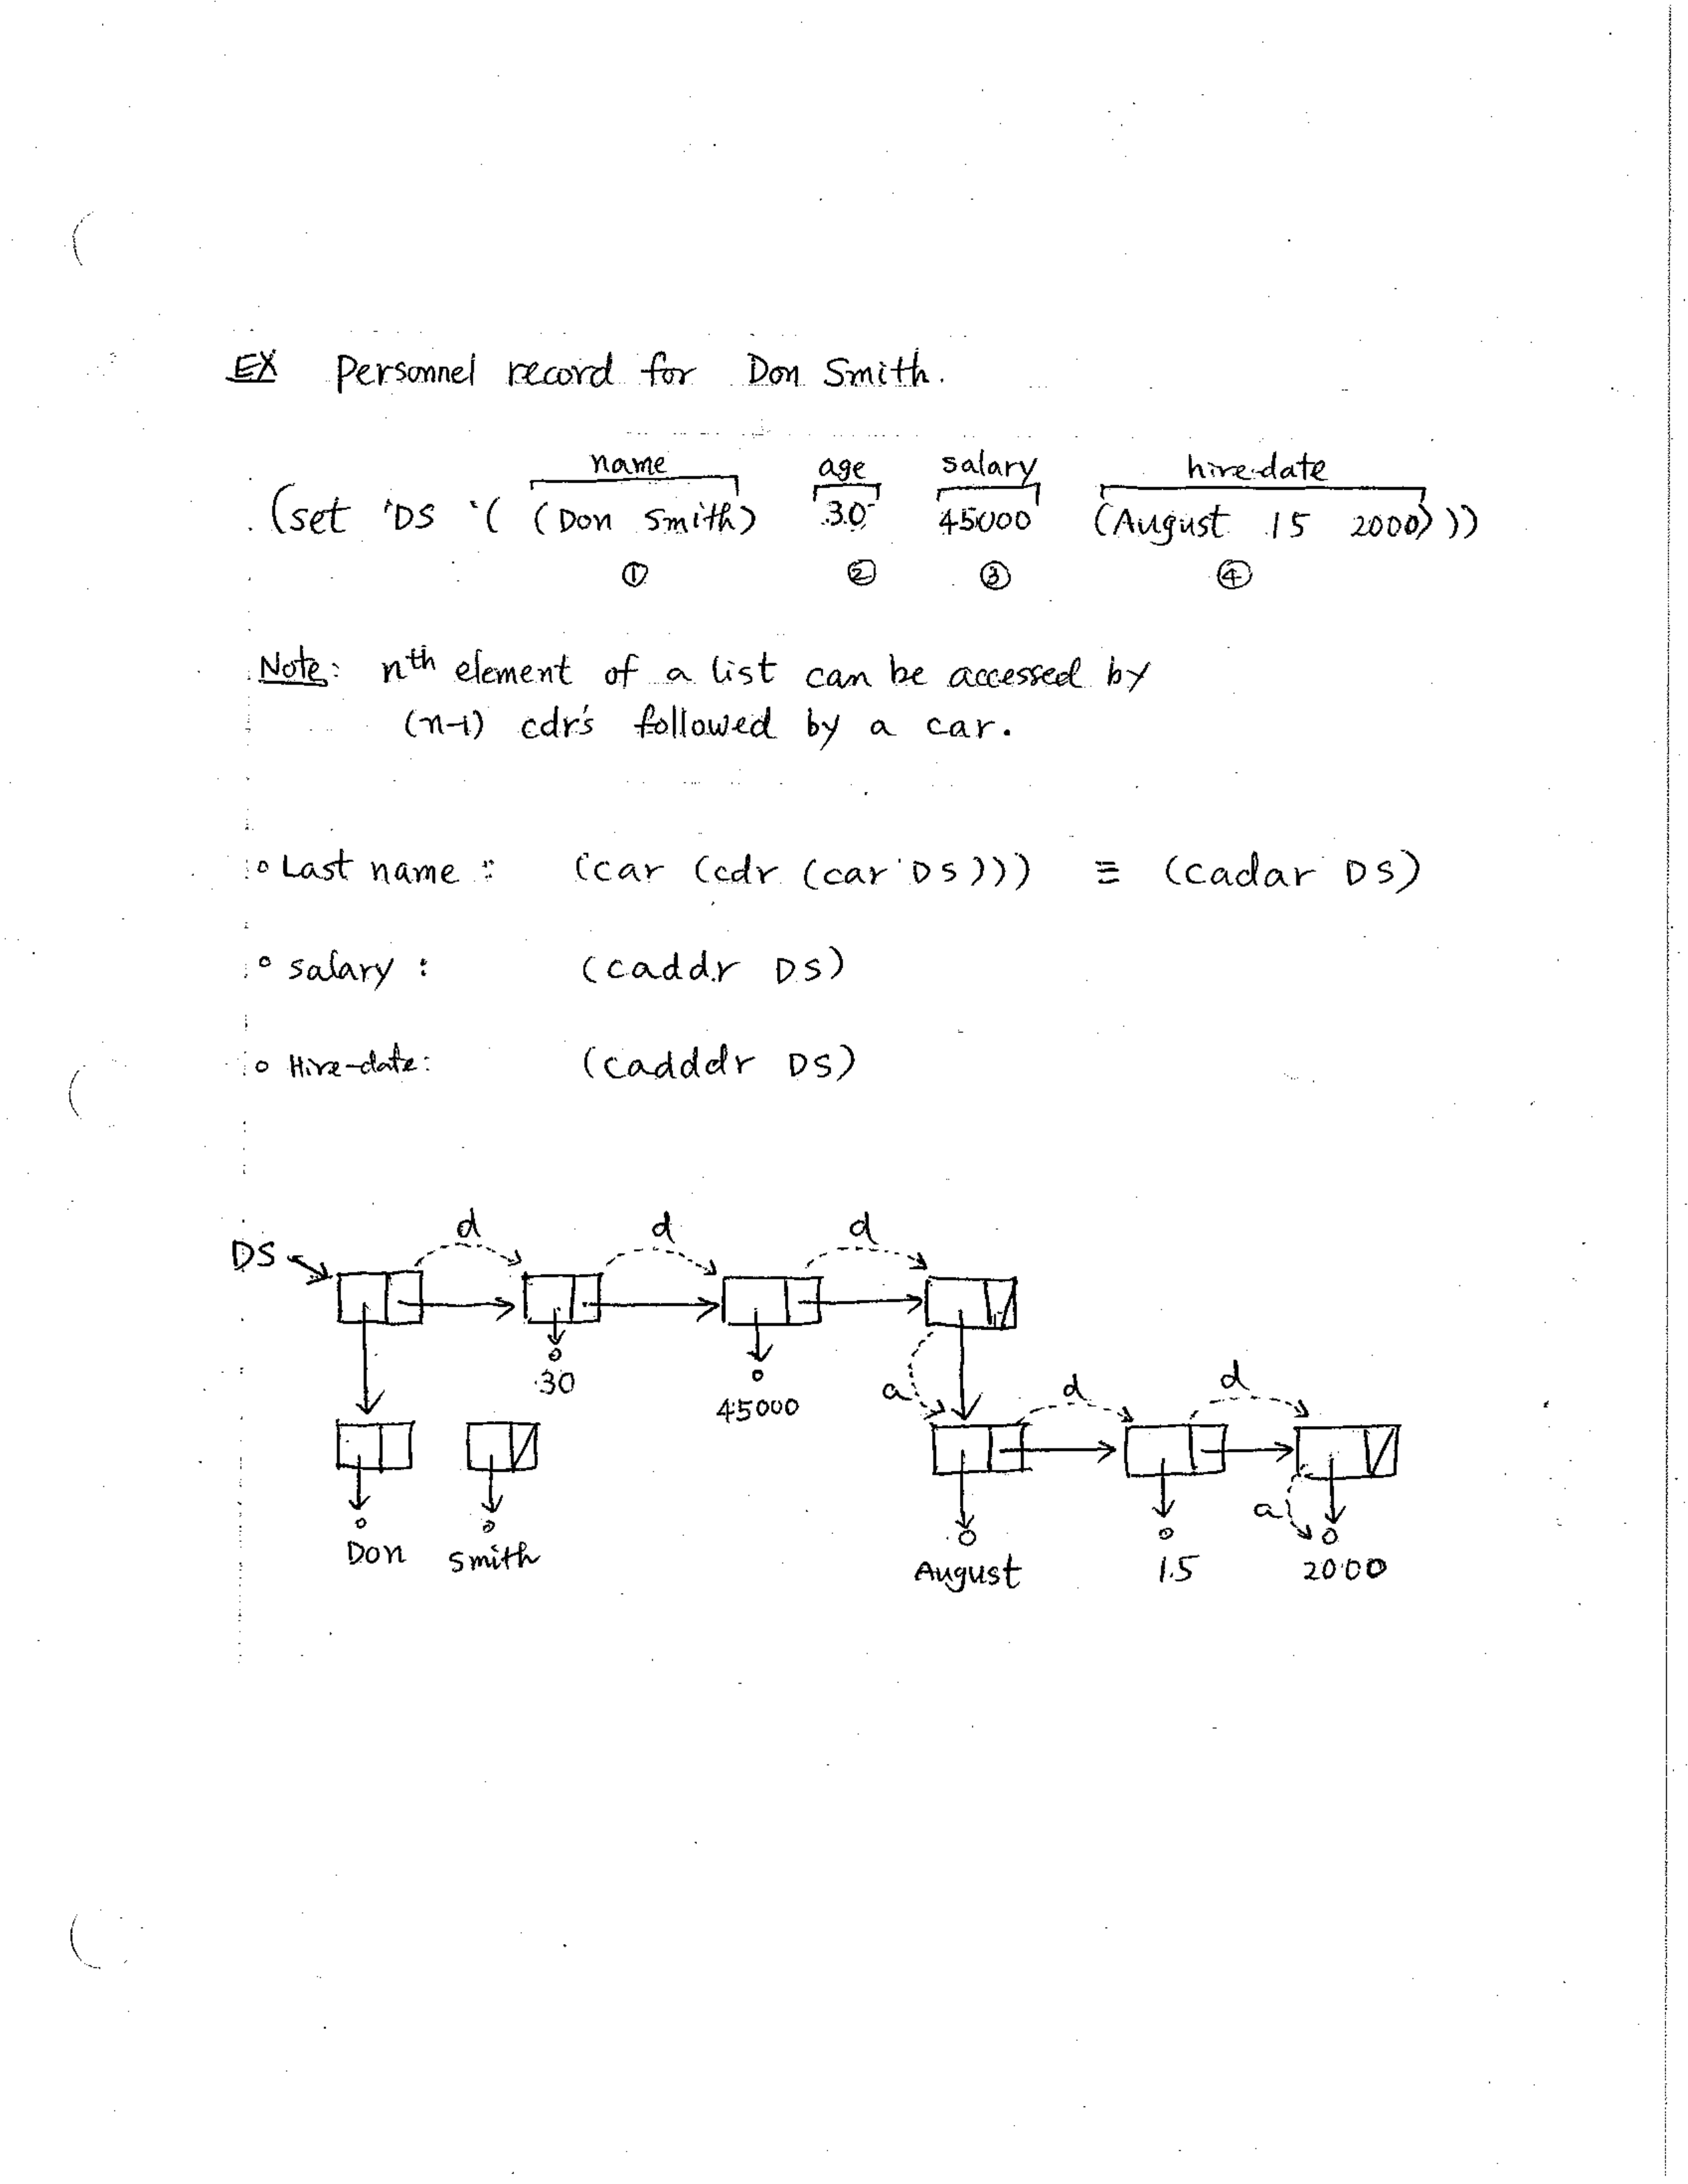 EX Personnel record for Don Smith.
name age salary hire-date
(set 'DS '( (Don Smith) 30 45000 (August 15 2000) ))
① ② ③ ④
Note: nth element of a list can be accessed by
(n-1) cdr's followed by a car.
o Last name : (car (cdr (car DS))) ≡ (cadar DS)
o salary : (caddr DS)
o Hire-date: (cadddr DS)
d d d
DS
30
45000
a d d
a
Don Smith
August 15 2000